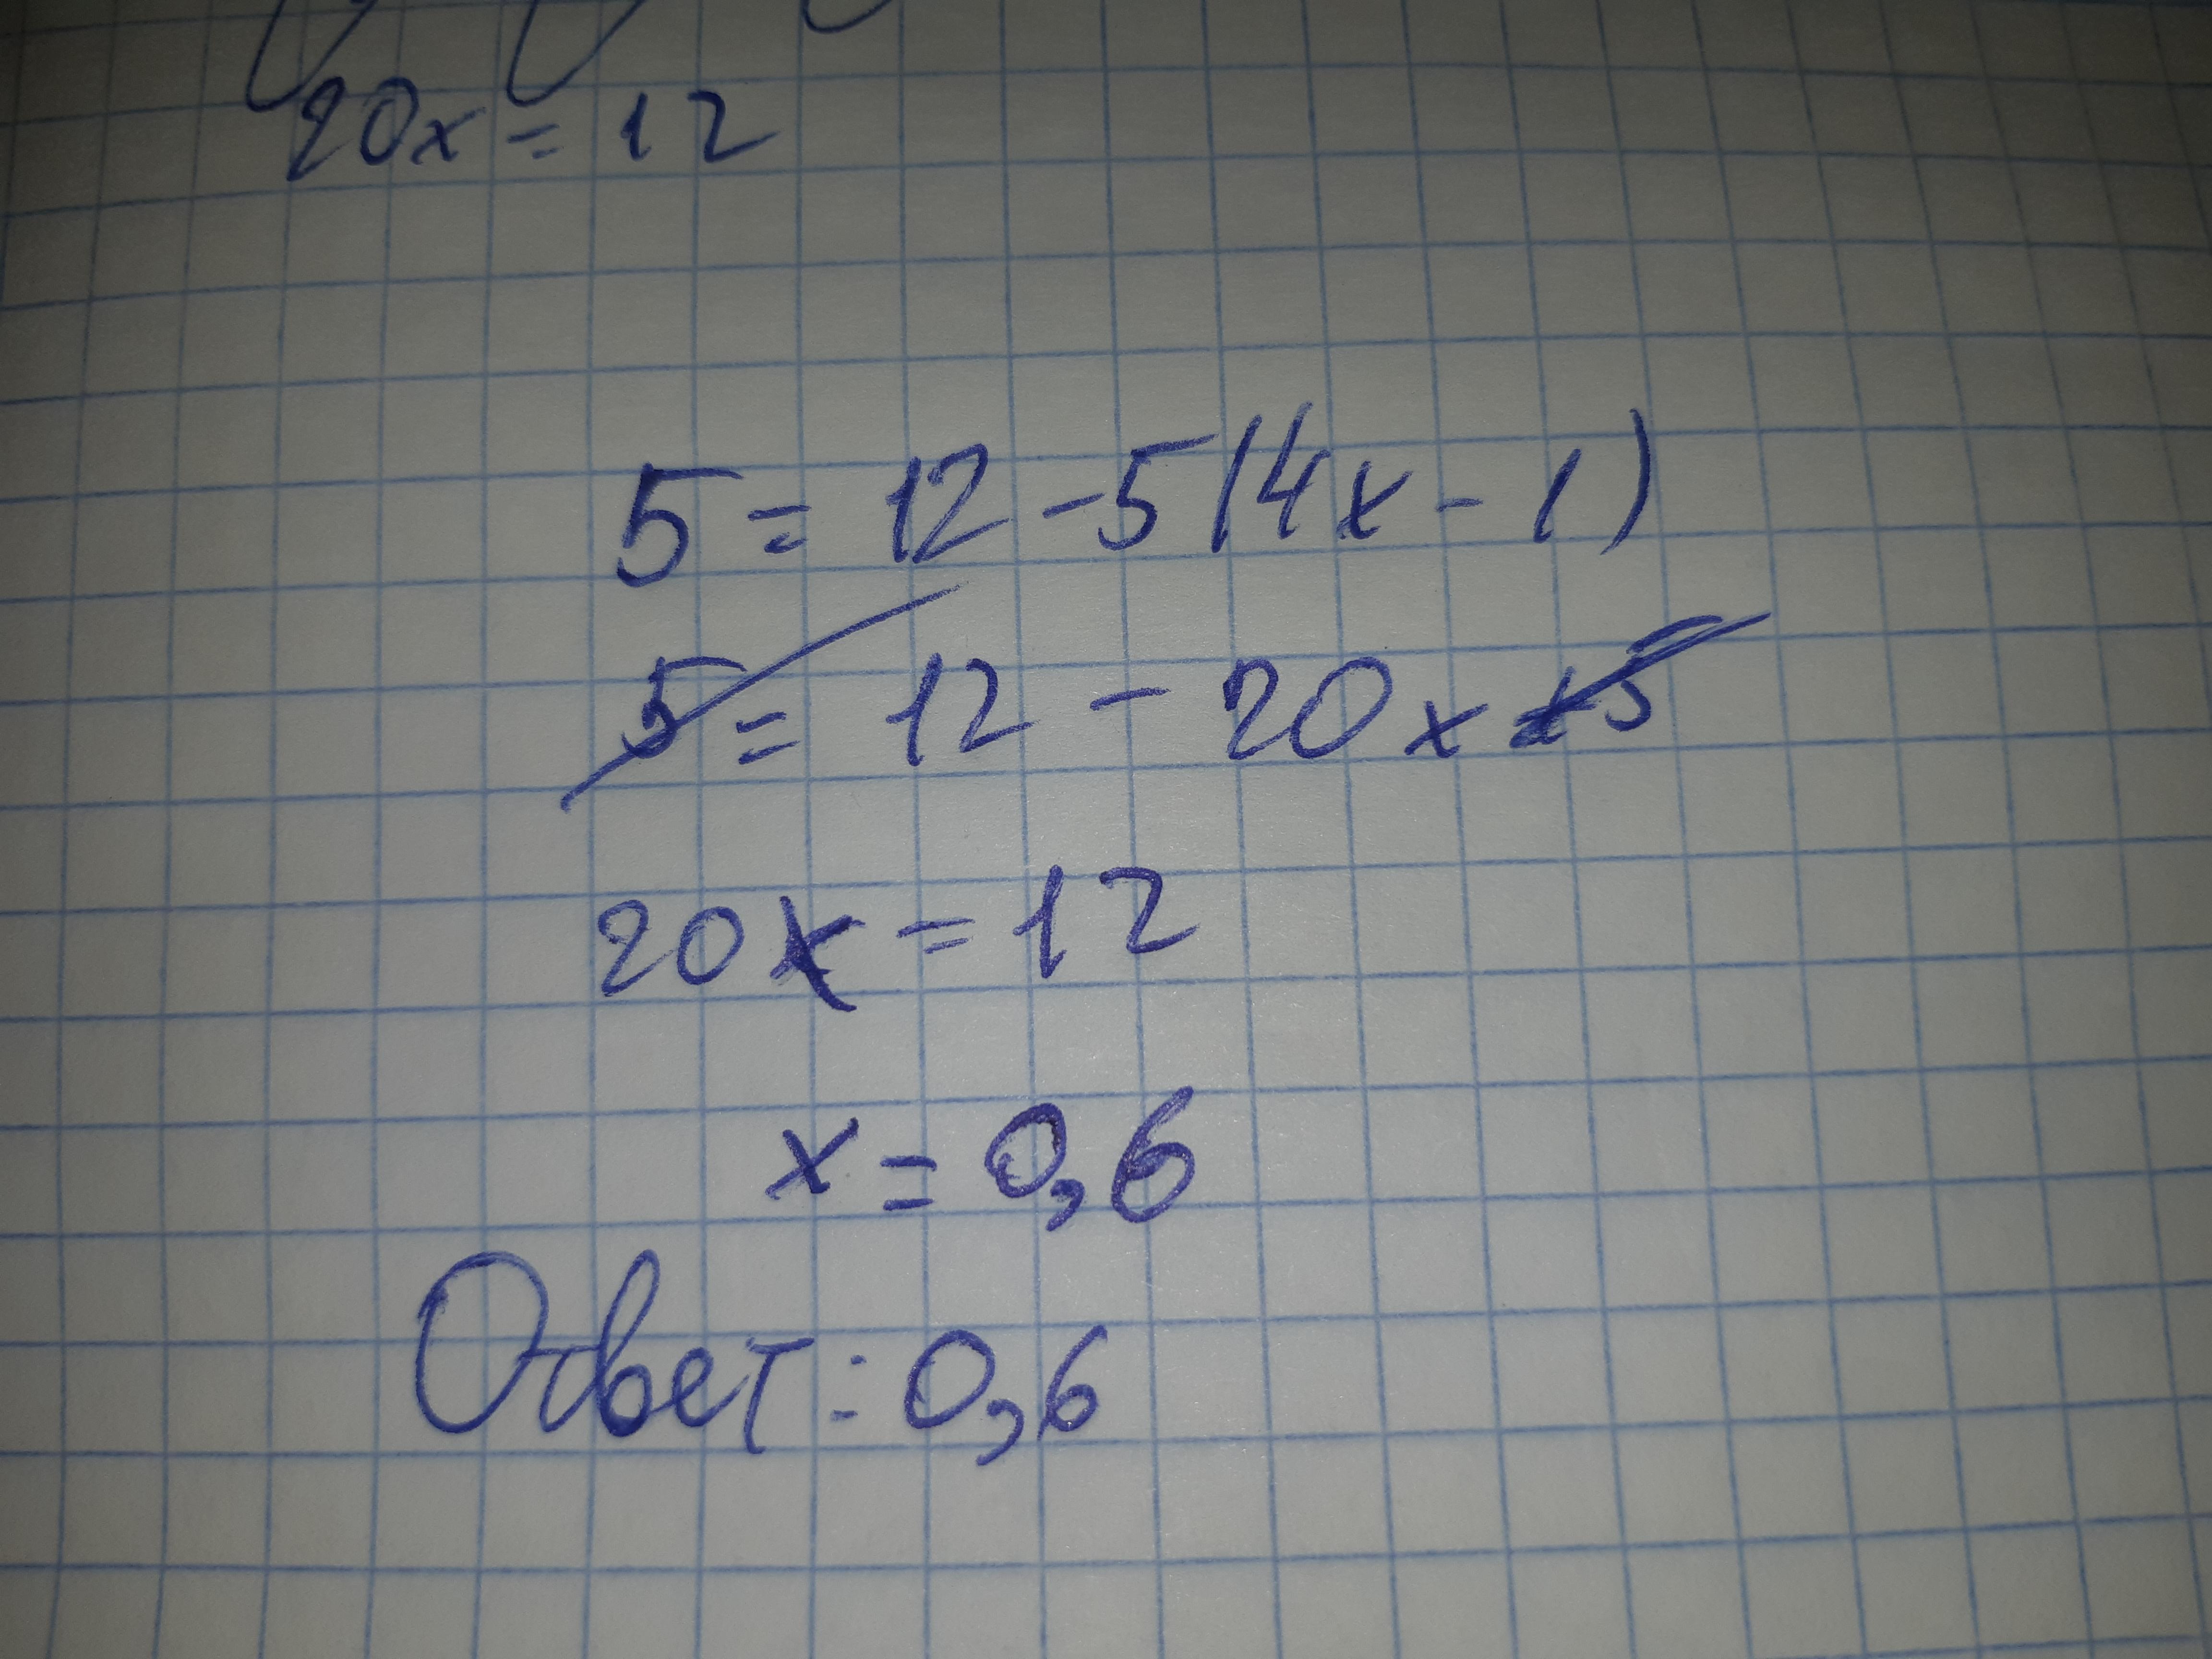 20x = 12
5 = 12 - 5(4x - 1)
5 = 12 - 20x + 5
20x = 12
x = 0,6
Ответ: 0,6